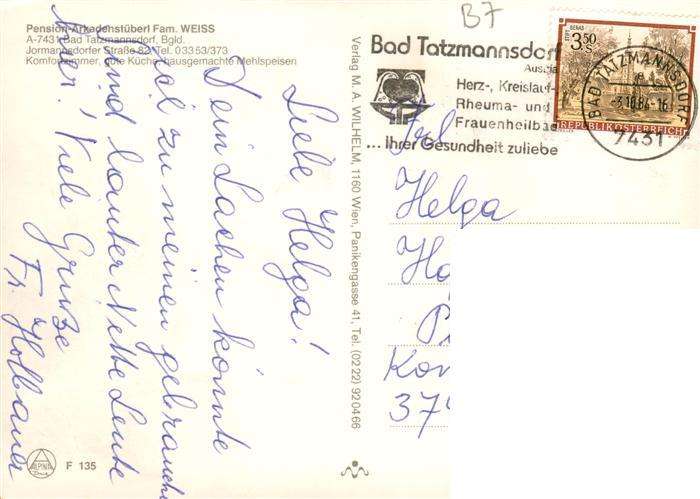 Pension-Arkadenstüberl Fam. WEISS
A-7431 Bad Tatzmannsdorf, Bgld.
Jormannsdorfer Straße 82, Tel. 0 33 53/373
Komfortzimmer, gute Küche, hausgemachte Mehlspeisen
Liebe Helga!
Dein Lachen könnte
ich zu meinen gebrauchen
sind lauter Nette Leute
hier! Viele Grüße
Fr. Holbauer
F 135
Verlag M. A. WILHELM, 1160 Wien, Panikengasse 41, Tel. (02 22) 92 04 66
B7
Bad Tatzmannsdorf
Austria
Herz-, Kreislauf-
Rheuma- und
Frauenheilbad
... Ihrer Gesundheit zuliebe
3.50
S
REPUBLIK ÖSTERREICH
BAD TATZMANNSDORF
-3.10.84-16
7431
Frl
Helga
Ho
P
Kon
379